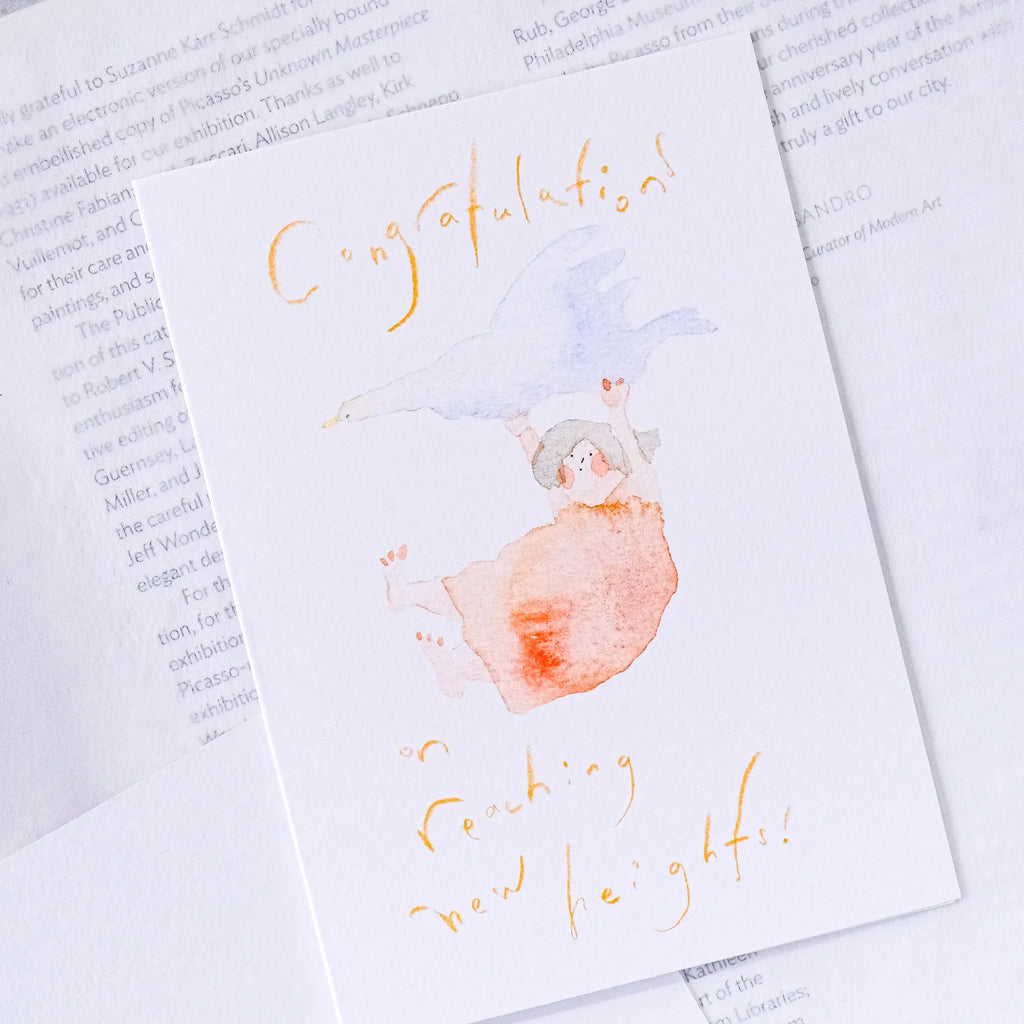 Congratulations
on
reaching
new heights!
grateful to Suzanne Karr Schmidt for
an electronic version of our specially bound
embellished copy of Picasso's Unknown Masterpiece
available for our exhibition. Thanks as well to
Christine Fabian Zuccari, Allison Langley, Kirk
Vuillemot, and
for their care and
paintings, and
The Public
tion of this cat
to Robert V. S
enthusiasm f
tive editing o
Guernsey, L
Miller, and J
the careful
Jeff Wonde
elegant de
For th
tion, for th
exhibition
Picasso-
exhibitio
Rub, George
Philadelphia Museum
Picasso from their
ns during the
ur cherished collection
anniversary year of the
sh and lively conversation with
truly a gift to our city.
SANDRO
Curator of Modern Art
Kathleen
rt of the
m Libraries;